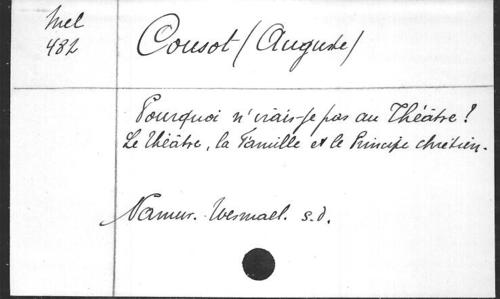 Mel
482
Cousot (Auguste)
Pourquoi n'irais-je pas au Théâtre!
Le Théâtre, la Famille et le Principe chrétien.
Namur. Wesmael. s.d.